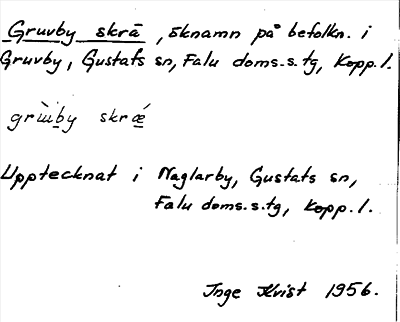 Gruvby skrå, öknamn på befolkn. i
Gruvby, Gustafs sn, Falu doms.s.tg, Kopp.l.
skrǽ
Upptecknat i Naglarby, Gustats sn,
Falu doms.s.tg, Kopp.l.
Inge Kvist 1956.